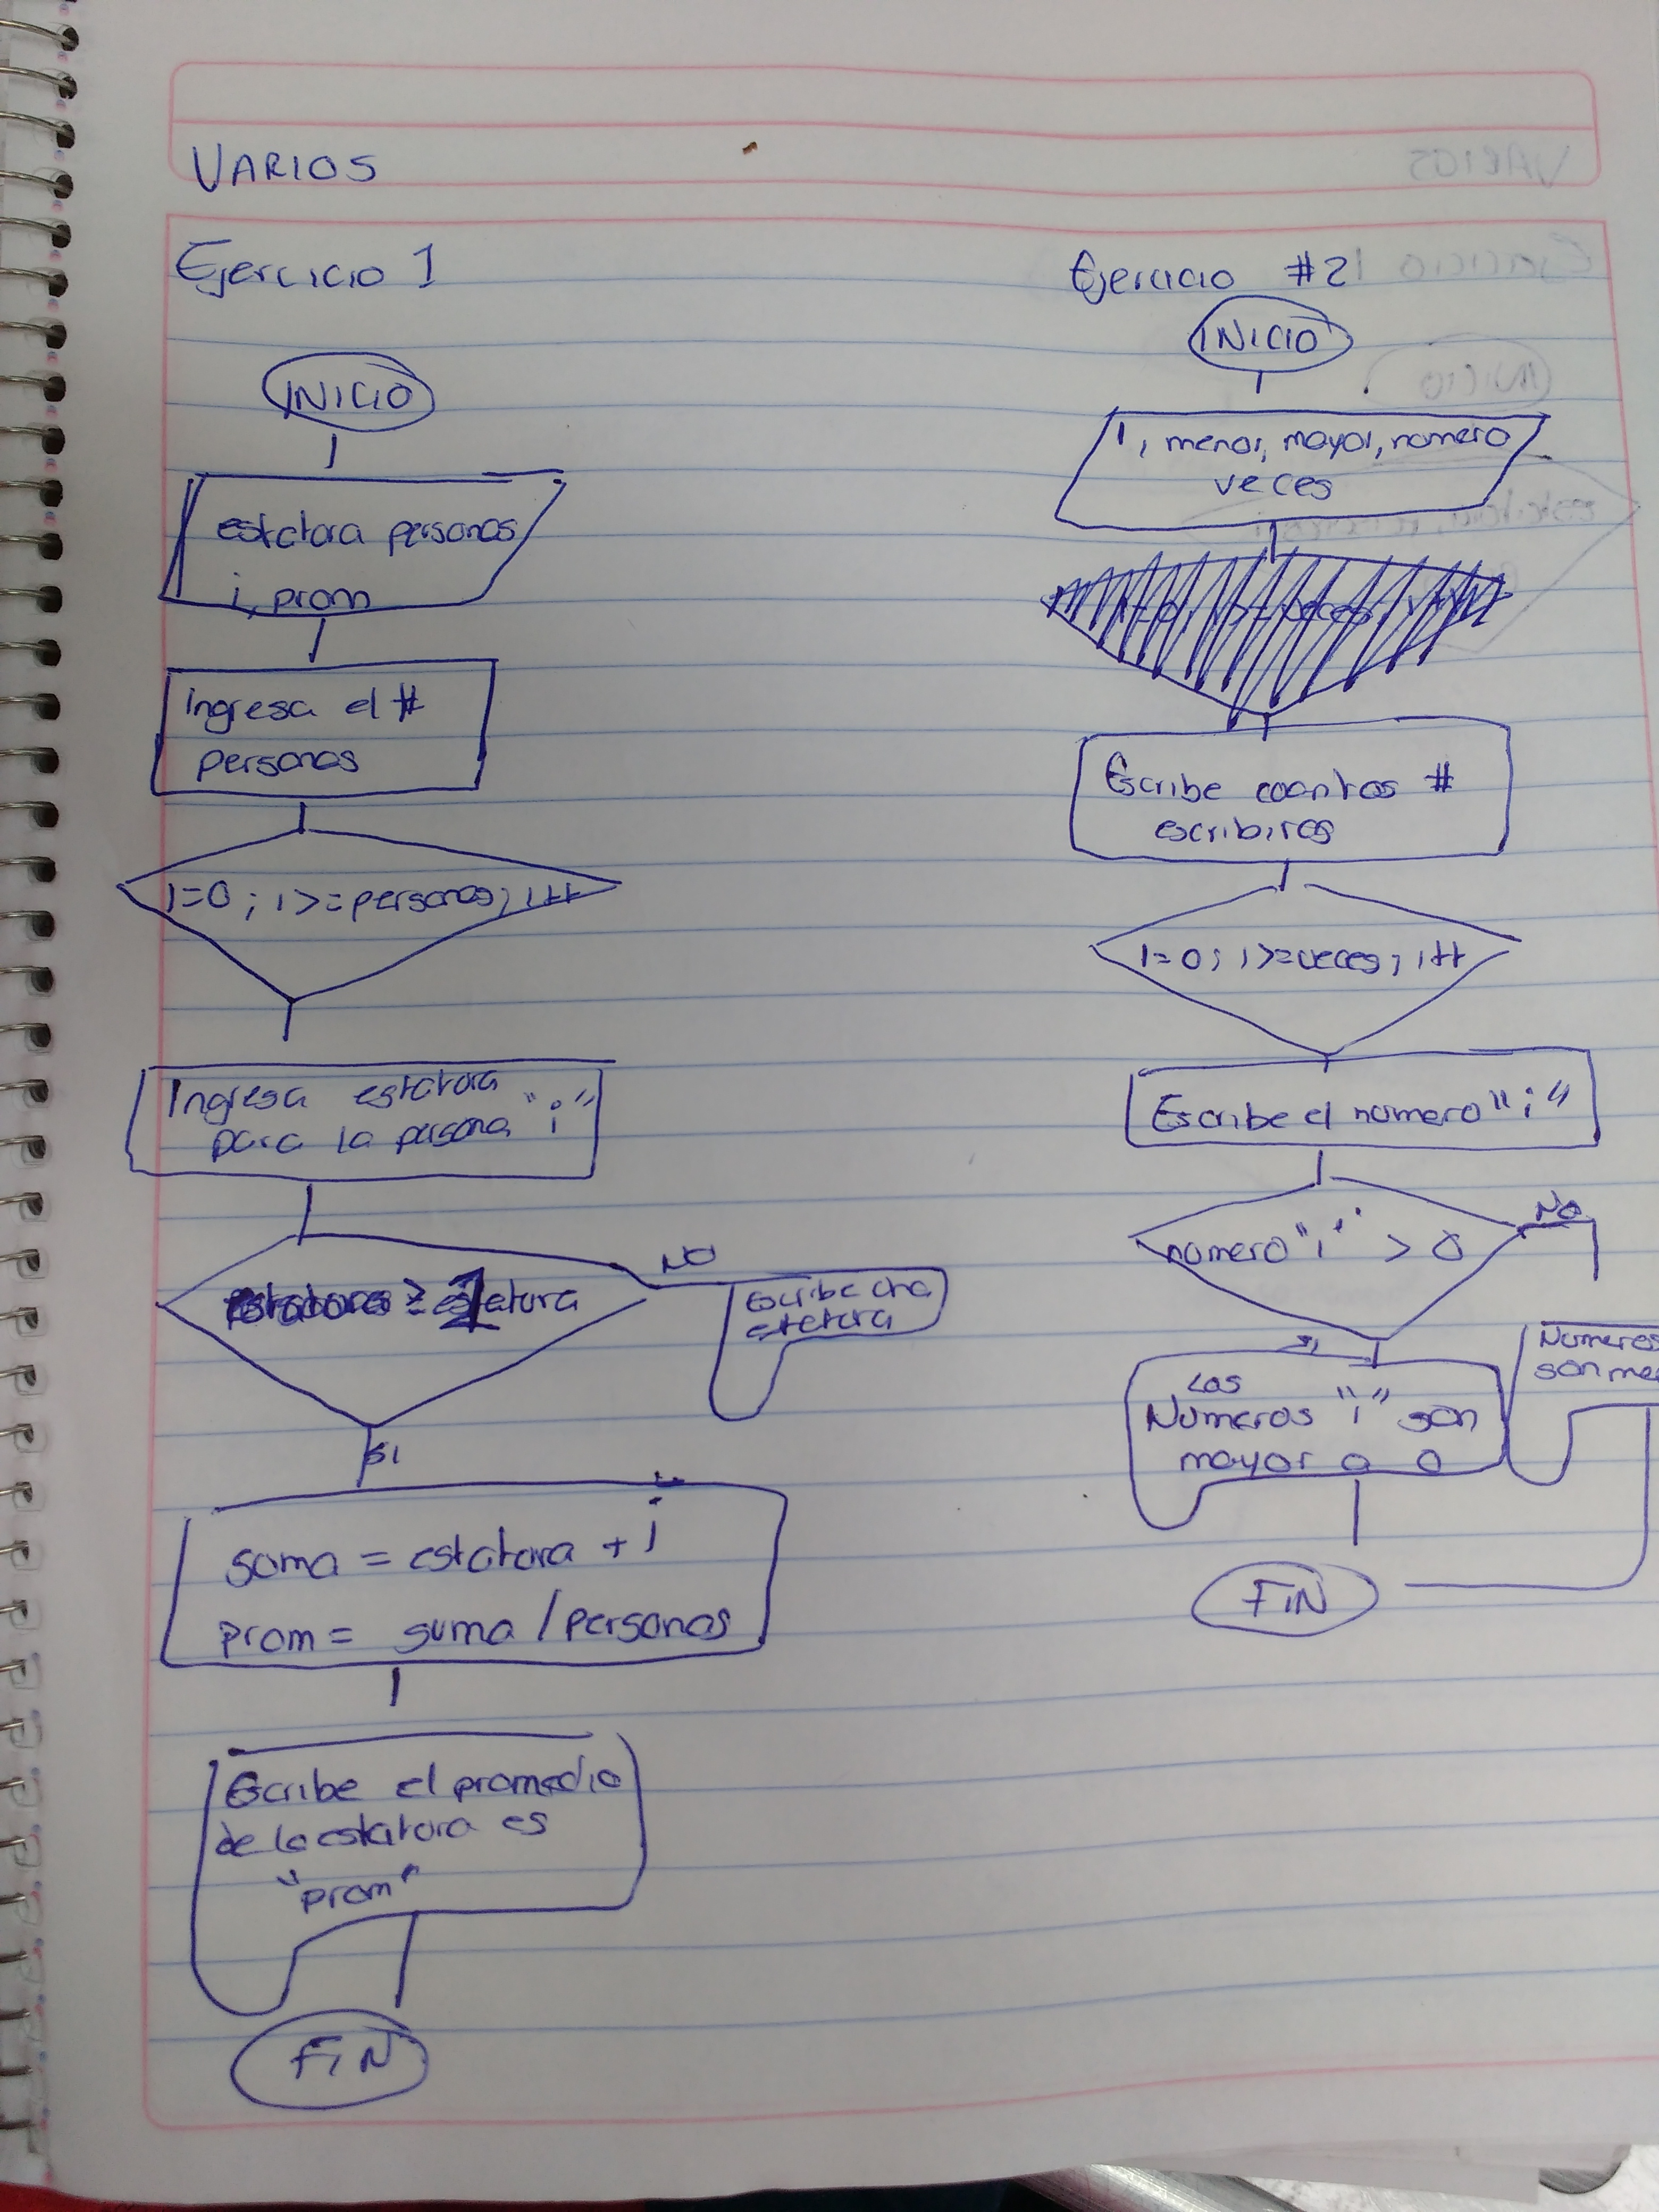 VARIOS
Ejercicio 1
INICIO
estatura personas
i, prom
Ingresa el #
personas
i=0; i>=personas; i++
Ingresa estatura
para la persona "i"
1
NO
Escribe otra
estatura
Si
suma = estatura + i
prom = suma / personas
Escribe el promedio
de la estatura es
"prom"
FIN
Ejercicio #2
INICIO
i, menor, mayor, numero
veces
Escribe cuantos #
escribiras
i=0; i>=veces; i++
Escribe el numero "i"
numero "i" > 0
No
Si
Los
Numeros "i" son
mayor a 0
Numeros
son me
FIN